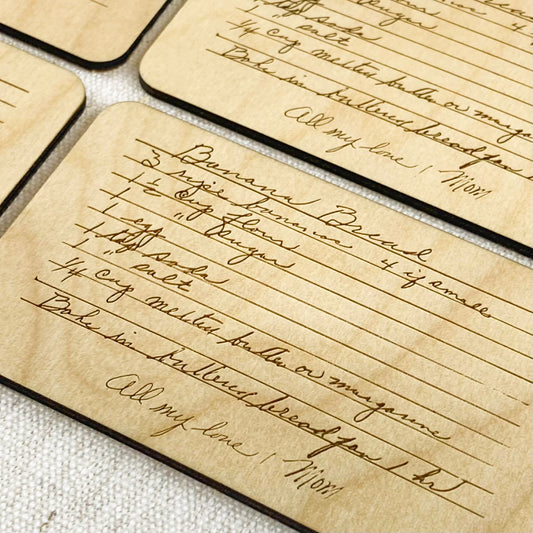 1 tsp soda
1 " salt
1/4 cup melted butter or margarine
Bake in buttered bread pan 1 hr
All my love, Mom
Banana Bread
3 ripe bananas 4 if small
1 1/2 cup flour
1 " sugar
1 egg
1 tsp soda
1 " salt
1/4 cup melted butter or margarine
Bake in buttered bread pan 1 hr
All my love, Mom